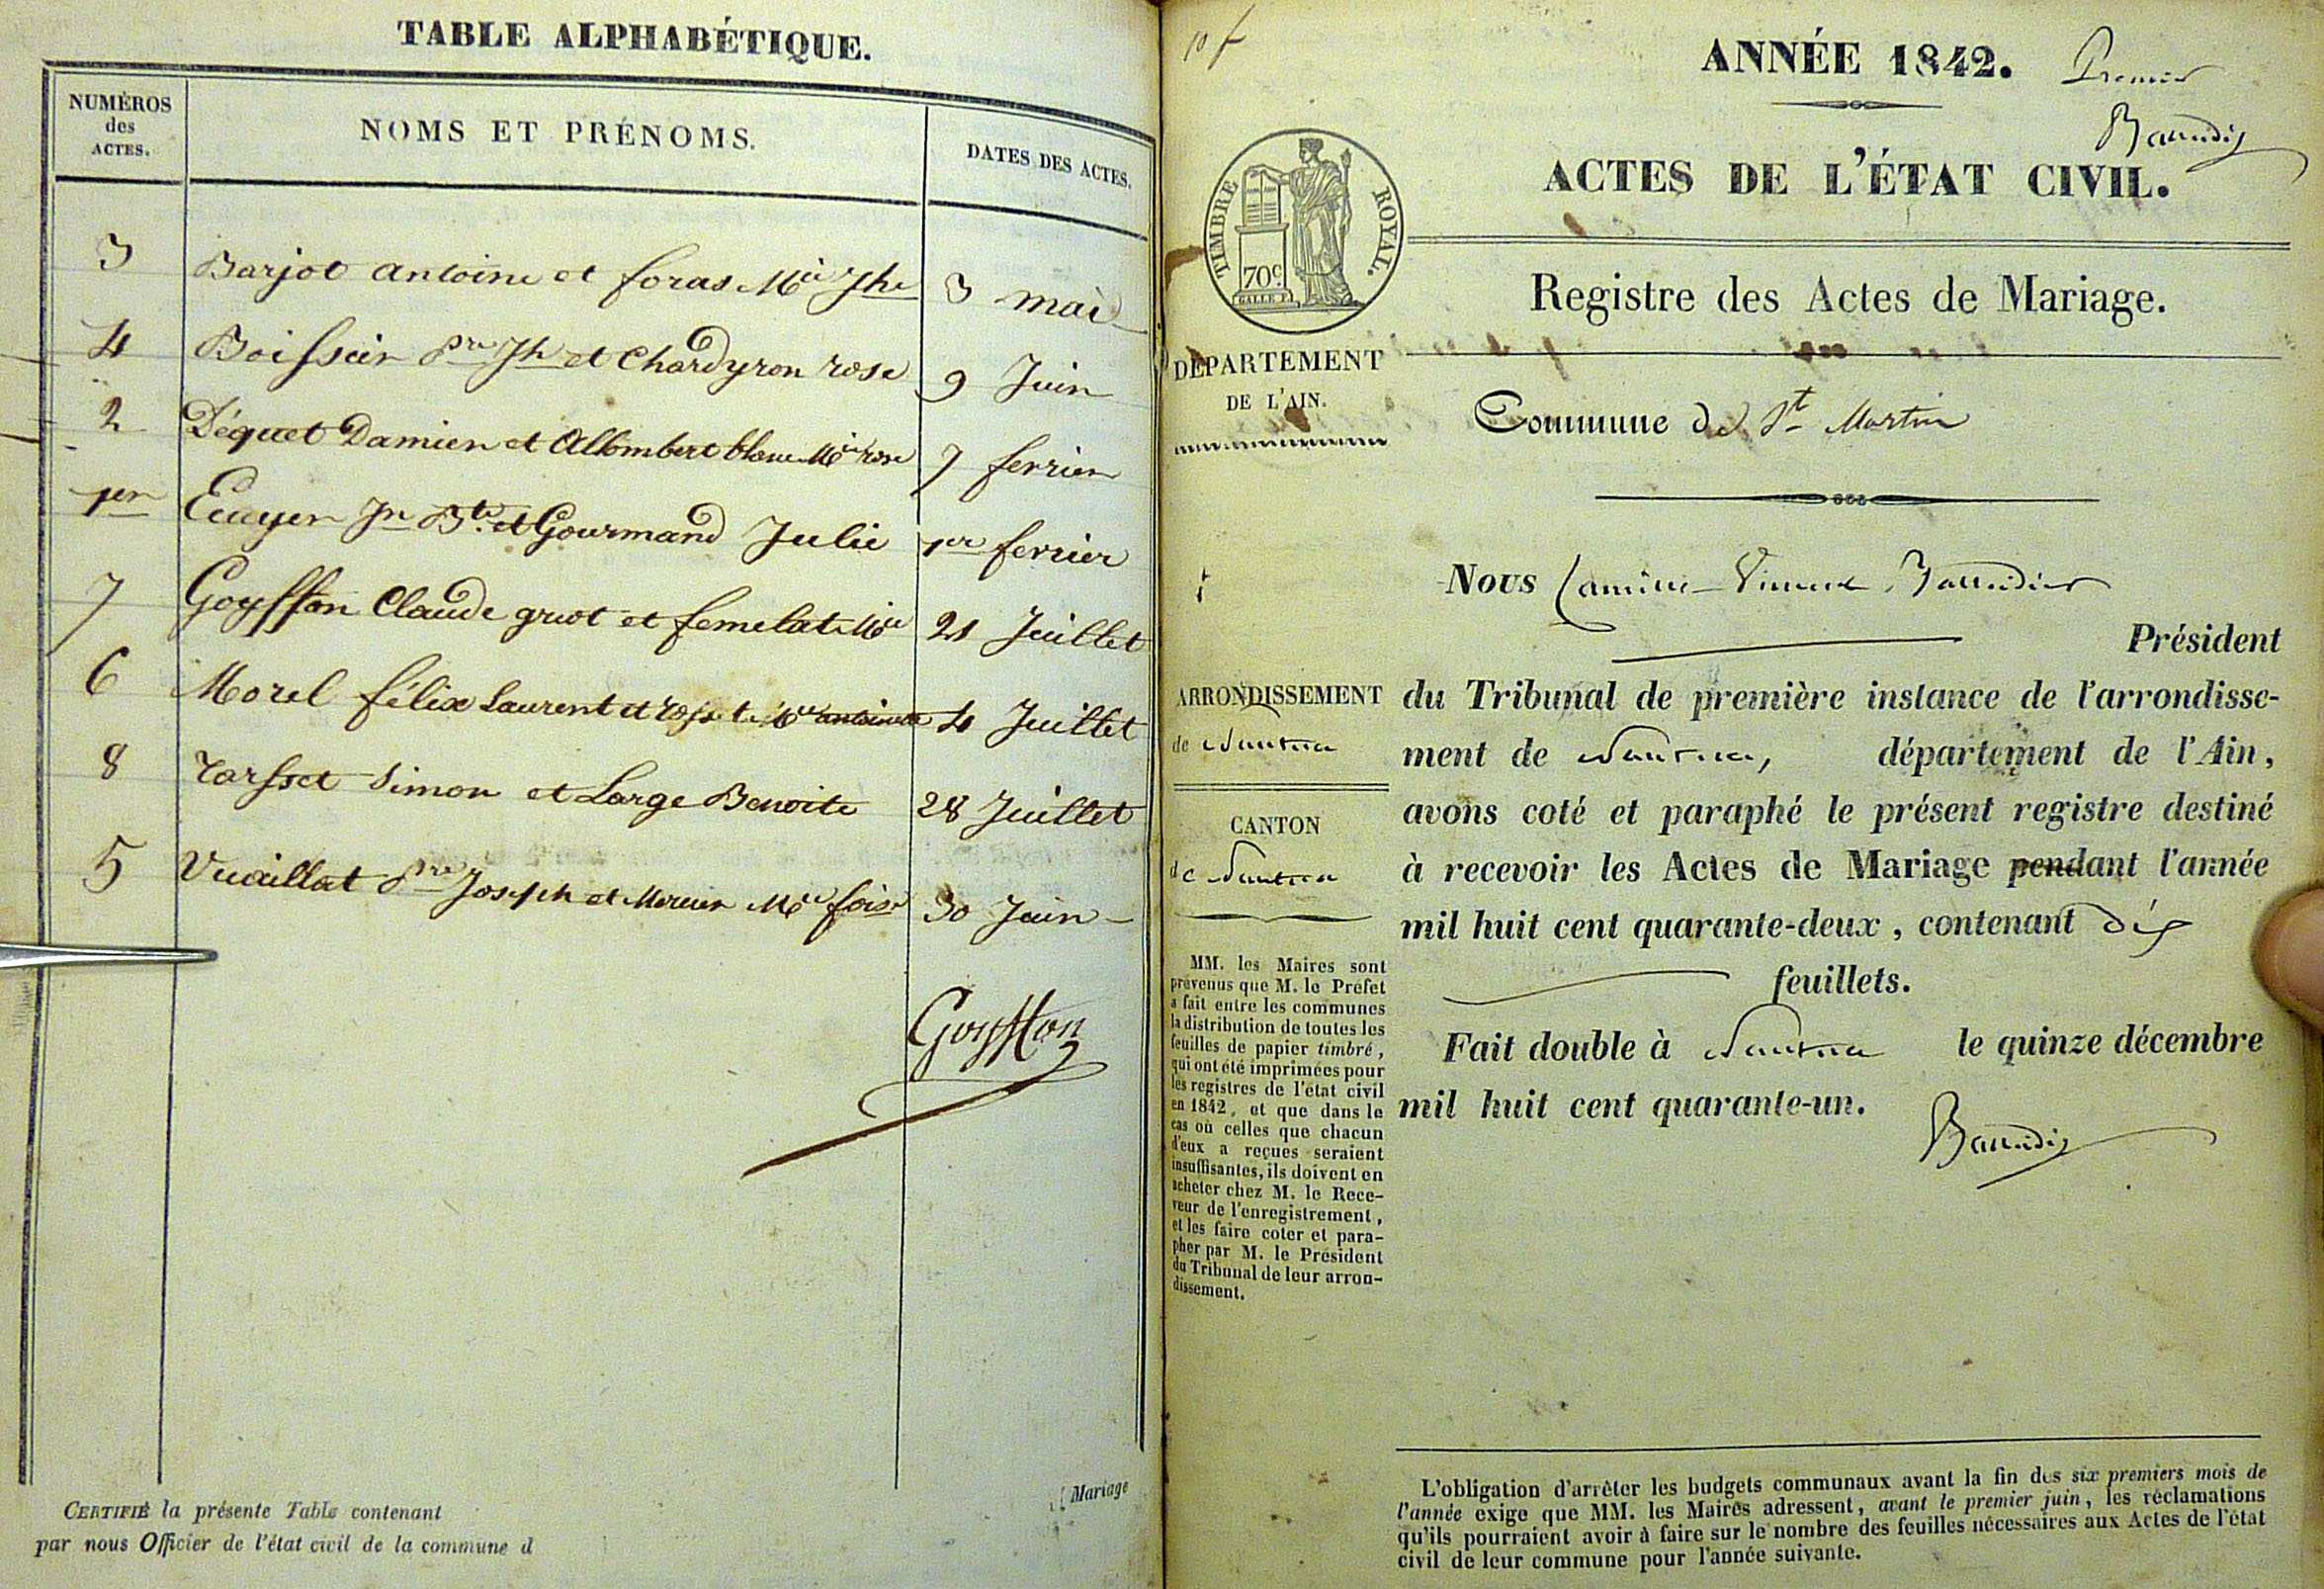 TABLE ALPHABÉTIQUE.
NUMÉROS
des
ACTES.
NOMS ET PRÉNOMS.
DATES DES ACTES.
3 Barjot antoine et foras Mie Jhe 3 mai
4 Boissier Pre Jh et Chardyron rose 9 Juin
2 Déquet Damien et Allombert blanc Mie rose 7 ferrier
1er Ecuyer Jn Bte et Gourmand Julie 1er ferrier
7 Goyffon Claude griot et femelat Mie 21 Juillet
6 Morel félix Laurent et Mie antoinette 4 Juillet
8 Tarsset Simon et Large Benoite 28 Juillet
5 Vuaillat Pre Joseph et Mercier Mie foise 30 Juin
Goyffon
CERTIFIÉ la présente Table contenant
par nous Officier de l'état civil de la commune d
Mariage
10 f
ANNÉE 1842.
Premier
Baudis
ACTES DE L'ÉTAT CIVIL.
TIMBRE ROYAL.
70c.
GALLE F.
Registre des Actes de Mariage.
DÉPARTEMENT
DE L'AIN.
Commune de St Martin
Nous Camille Vincent
Président
ARRONDISSEMENT
de Nantua
du Tribunal de première instance de l'arrondisse-
ment de Nantua, département de l'Ain,
avons coté et paraphé le présent registre destiné
à recevoir les Actes de Mariage pendant l'année
mil huit cent quarante-deux, contenant dix
feuillets.
CANTON
de Nantua
Fait double à Nantua le quinze décembre
mil huit cent quarante-un.
MM. les Maires sont
prévenus que M. le Préfet
a fait entre les communes
la distribution de toutes les
feuilles de papier timbré,
qui ont été imprimées pour
les registres de l'état civil
en 1842, et que dans le
cas où celles que chacun
d'eux a reçues seraient
insuffisantes, ils doivent en
acheter chez M. le Rece-
veur de l'enregistrement,
et les faire coter et para-
pher par M. le Président
du Tribunal de leur arron-
dissement.
L'obligation d'arrêter les budgets communaux avant la fin des six premiers mois de
l'année exige que MM. les Maires adressent, avant le premier juin, les réclamations
qu'ils pourraient avoir à faire sur le nombre des feuilles nécessaires aux Actes de l'état
civil de leur commune pour l'année suivante.